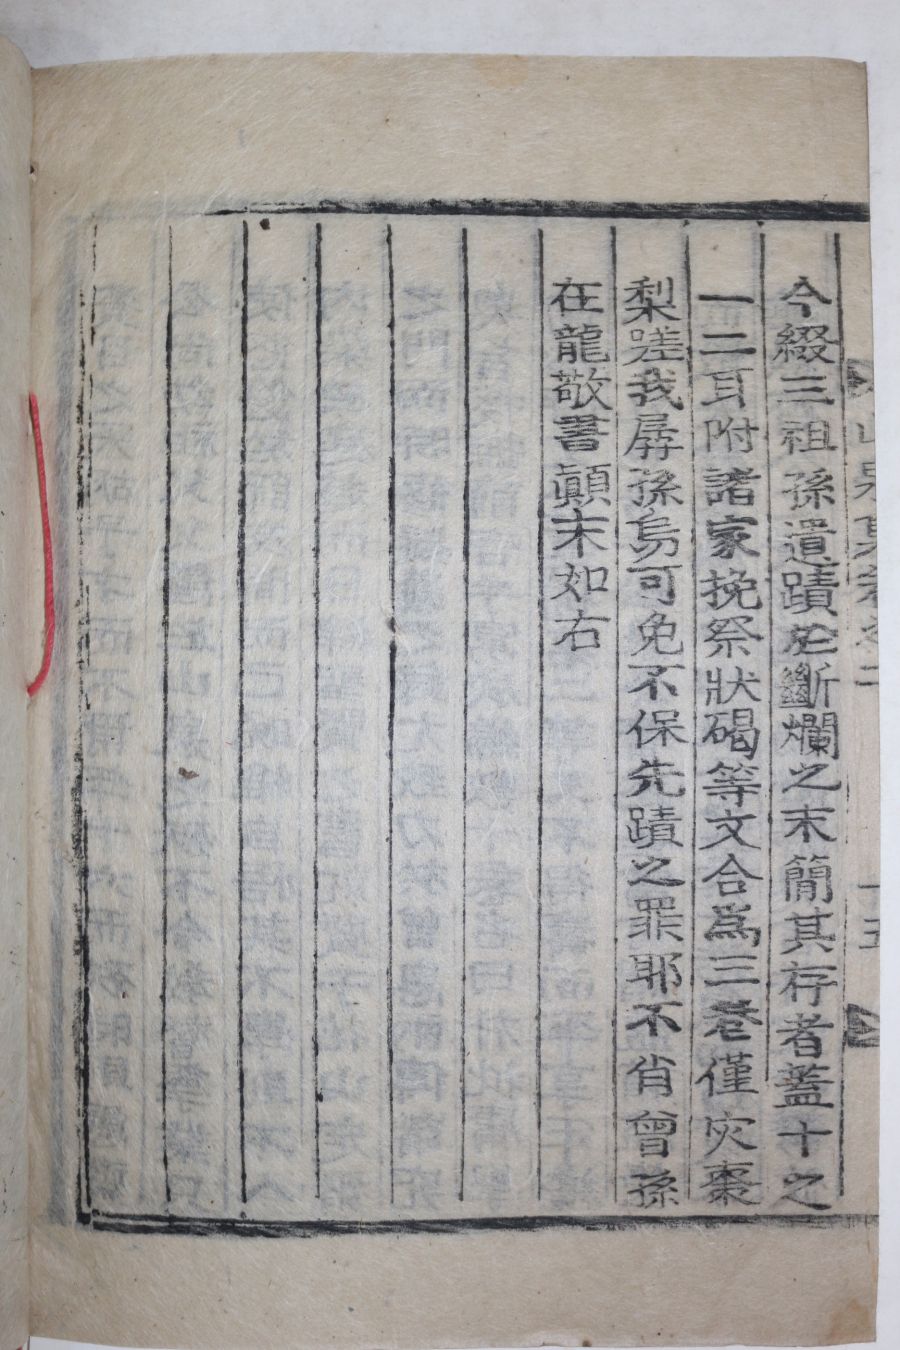 今綴三祖孫遺蹟於斷爛之末簡其存者蓋十之
一二耳附諸家挽祭狀碣等文合爲三卷僅灾棗
梨嗟我孱孫烏可免不保先蹟之罪耶不肖曾孫
在龍敬書顚末如右